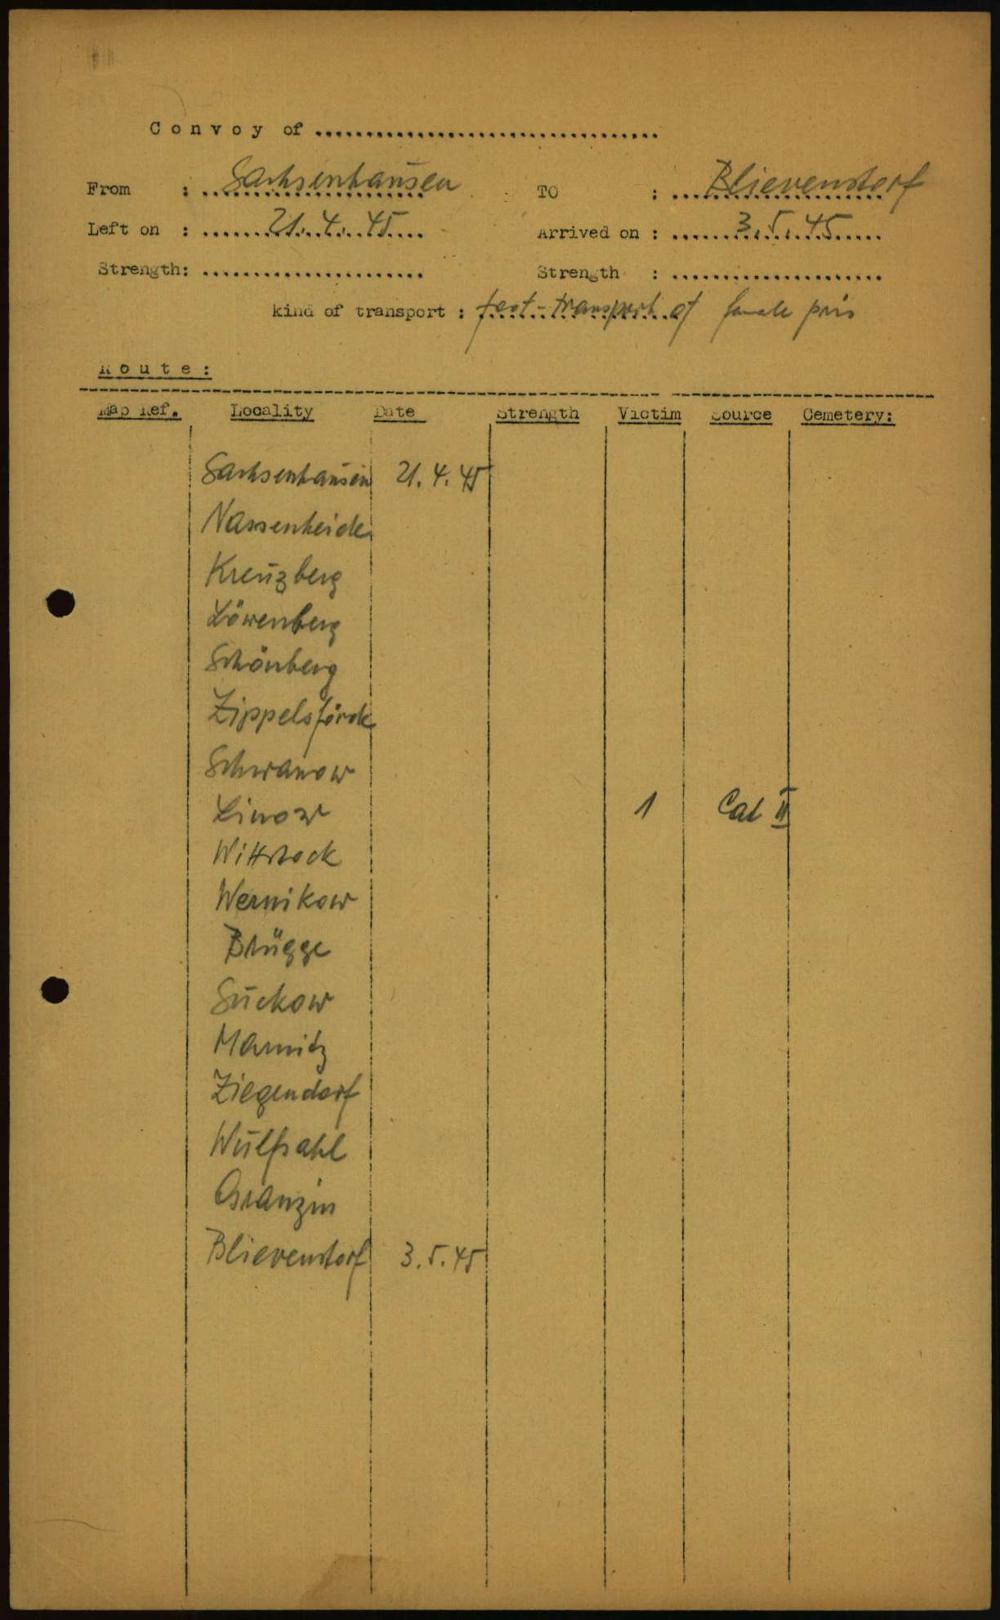 Convoy of ..................................
From : Sachsenhausen TO : Blievenstorf
Left on : 21.4.45 Arrived on : 3.5.45
Strength: ...................... Strength : .....................
kind of transport : foot-transport of female pris
Route:
Map Ref. Locality Date Strength Victim Source Cemetery:
Sachsenhausen 21.4.45
Nassenheide
Kreuzberg
Löwenberg
Schönberg
Zippelsförde
Schwanow
Linow 1 Cat II
Wittstock
Wernikow
Brügge
Suckow
Marnitz
Ziegendorf
Wulfsahl
Granzin
Blievenstorf 3.5.45